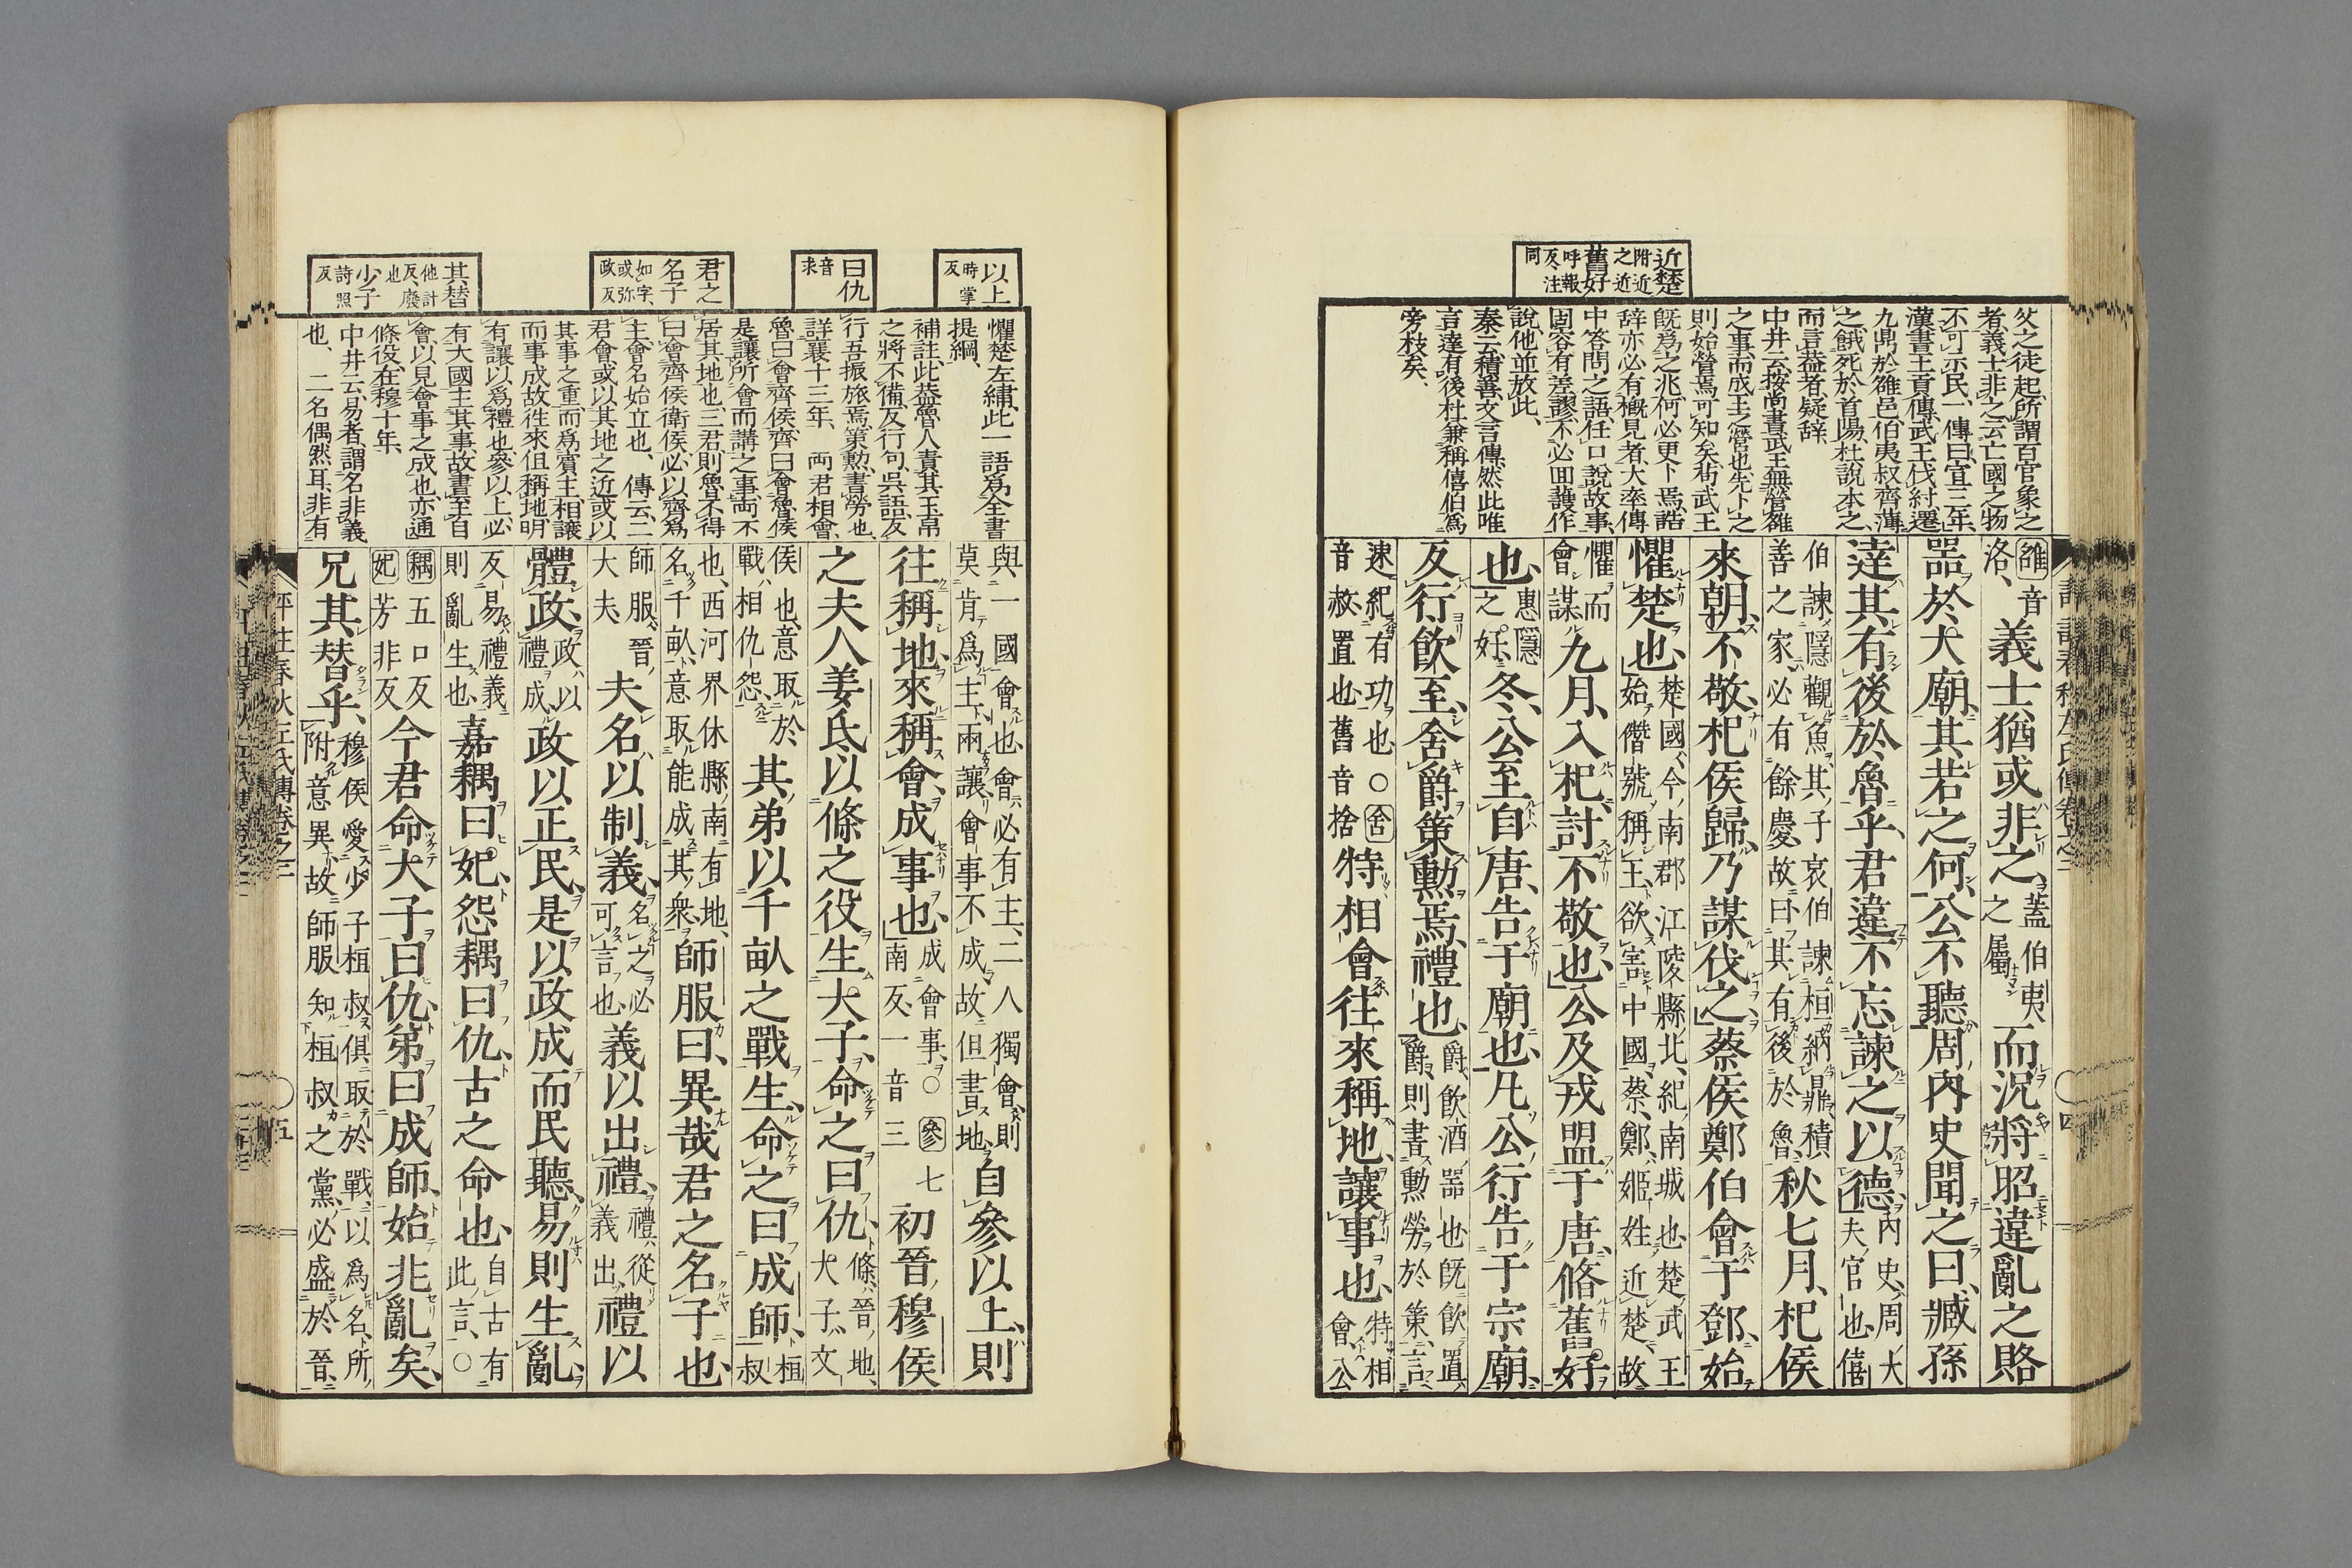 近楚附近之近
舊好呼報反注同
父之徒起所謂百官象之
者義士非之云亡國之物
不可示民一傳曰宣三年
漢書王貢傳武王伐紂遷
九鼎於雒邑伯夷叔齊薄
之餓死於首陽杜說本之
而言蓋者疑辞
中井云按尚書武王無營雒
之事而成王之營也先卜之
則始營焉可知矣若武王
既爲之兆何必更卜焉誥
辞亦必有槪見者大率傳
中荅問之語任口說故事
固容有差謬不必囬護作
說他並放此、
秦云積善文言傳然此唯
言達有後杜兼稱僖伯爲
旁枝矣、
雒音洛、義士猶或非之、蓋伯夷之屬、而況將昭違亂之賂
器於大廟、其若之何、公不聽、周內史聞之曰、臧孫
達其有後於魯乎、君違不忘諫之以德、內史、周大夫官也、僖
伯諫隱觀魚、其子哀伯諫桓納鼎、積善之家、必有餘慶、故曰、其有後於魯、秋七月、杞侯
來朝、不敬、杞侯歸、乃謀伐之、蔡侯鄭伯會于鄧、始
懼楚也、楚國、今南郡江陵縣北、紀南城也、楚武王始僭號稱王、欲害中國、蔡鄭姬姓、近楚、故
懼而會謀、九月、入杞、討不敬也、公及戎盟于唐、脩舊好
也、惠隱之好、冬、公至自唐、告于廟也、凡公行、告于宗廟、
反行、飮至、舍爵、策勳焉、禮也、爵、飮酒器也、既飮置爵、則書勳勞於策、言
速紀有功也、○舍音赦、置也、舊音捨特相會、往來稱地、讓事也、特相會、公
評註春秋左氏傳卷之三
四
以上時掌反
曰仇音求
君之名子如字、或弥政反
其替他計反、廢也
少子詩照反
懼楚左繡此一語爲全書
提綱、
補註此葢魯人責其玉帛
之將不備反行句吳語反
行吾振旅焉策勲書勞也
詳襄十三年、兩君相會、
魯曰會齊侯齊曰會魯侯
是讓所會而講之事兩不
居其地也三君則魯不得
曰會齊侯衛侯必以齊爲
主會名始立也、傳云二
君會或以其地之近或以
其事之重而爲賓主相讓
而事成故徃來伹稱地明
有讓以爲禮也參以上必
有大國主其事故書至自
會以見會事之成也亦通
條役在穆十年、
中井云易者謂名非義
也、二名偶然耳非有
與一國會也、會必有主、二人獨會、則莫肯爲主、兩讓、會事不成、故但書地、自參以上、則
往稱地、來稱會、成事也、成會事、○參七南反、一音三初晉穆侯
之夫人姜氏、以條之役生大子、命之曰仇、條、晉地、大子、文
侯也、意取於戰相仇怨、其弟以千畝之戰生、命之曰成師、桓叔
也、西河界休縣南有地、名千畝、意取能成其衆、師服曰、異哉君之名子也、
師服、晉大夫、夫名以制義、名之必可言也、義以出禮、禮從義出、禮以
體政、政以禮成、政以正民、是以政成而民聽、易則生亂、
反易禮義、則亂生也、嘉耦曰妃、怨耦曰仇、古之命也、自古有此言、○
耦五口反妃芳非反今君命大子曰仇、弟曰成師、始兆亂矣、
兄其替乎、穆侯愛少子桓叔、俱取於戰、以爲名、所附意異、故師服知桓叔之黨、必盛於晉、
評註春秋左氏傳卷之三
五